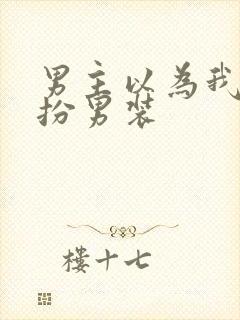 男主以为我
扮男装
楼十七